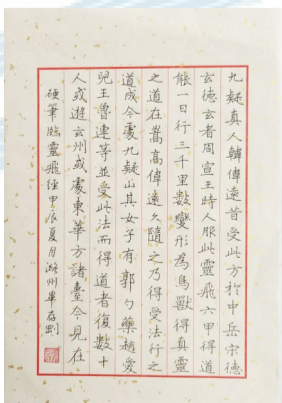 九疑真人韓偉遠昔受此方於中岳宋德
玄德玄者周宣王時人服此靈飛六甲得道
能一日行三千里數變形為鳥獸得真靈
之道在嵩高偉遠久隨之乃得受法行之
道成今處九疑山其女子有郭勺藥趙愛
兒王魯連等並受此法而得道者復數十
人或遊玄州或處東華方諸臺今見在
硬筆臨靈飛經甲辰夏月潞州畢存劉